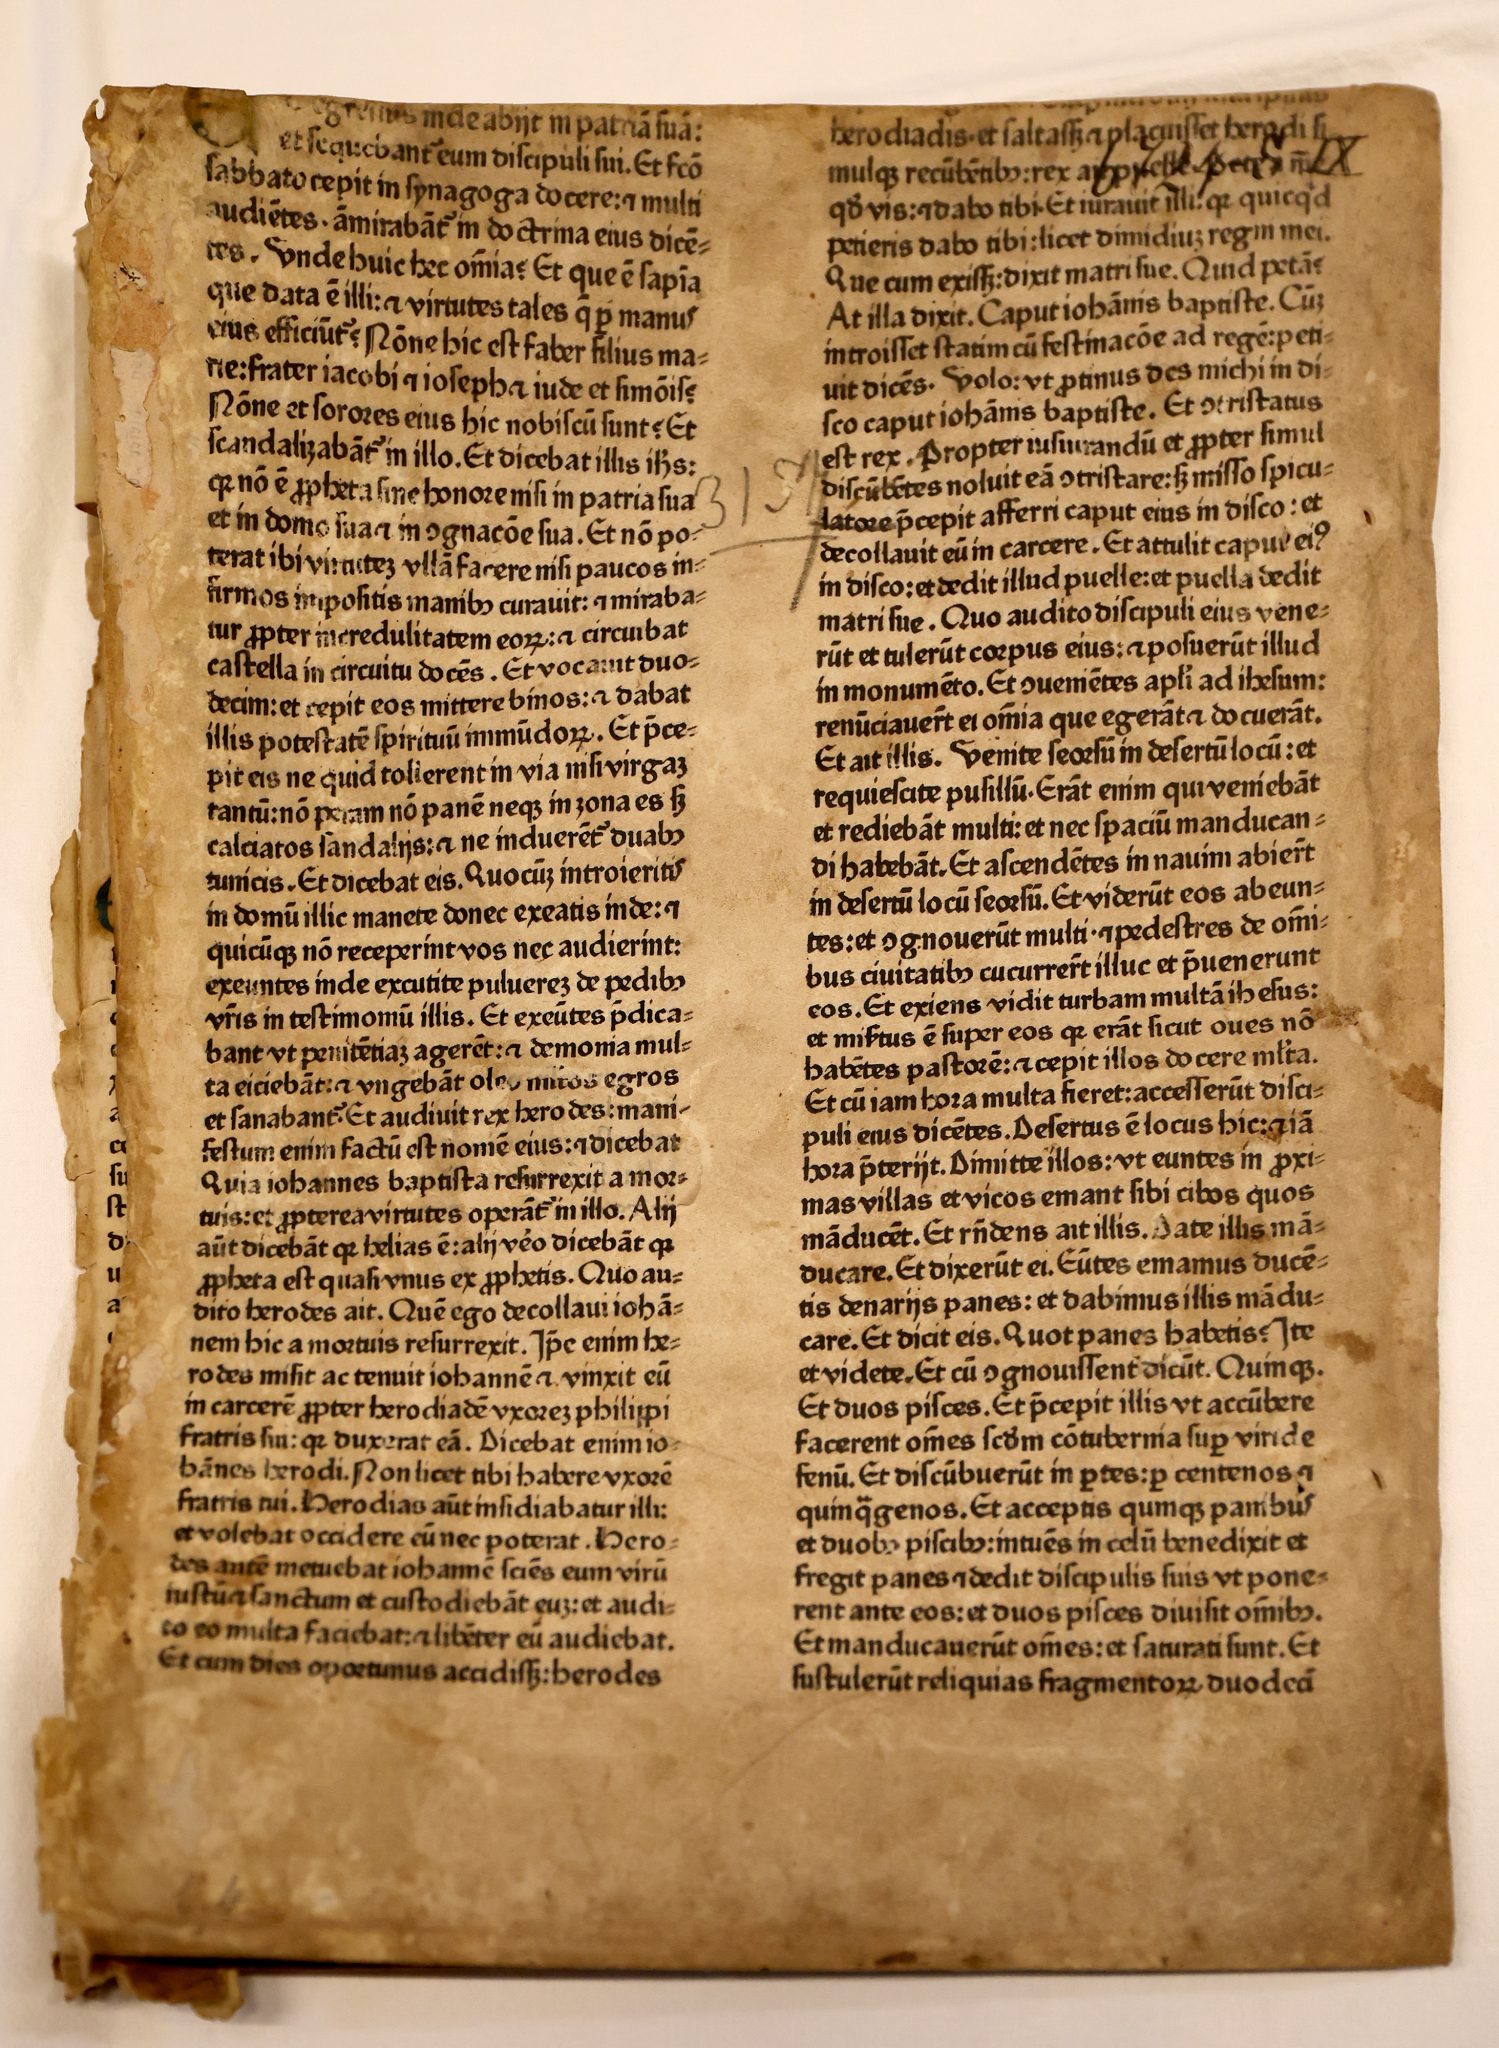 egressus inde abijt in patriã suã:
et sequebant᷑ eum discipuli sui. Et fcõ
sabbato cepit in synagoga docere: ⁊ multi
audiẽtes · ãmirabãt᷑ in doctrina eius dicẽ-
tes. Vnde huic hec om̃ia? Et que ẽ sapĩa
que data ẽ illi: ⁊ virtutes tales q̃ ꝑ manus
eius efficiũt᷑? Nõne hic est faber filius ma-
rie: frater iacobi ⁊ ioseph ⁊ iude et simõis?
Nõne et sorores eius hic nobiscũ sunt? Et
scandalizabãt᷑ in illo. Et dicebat illis ihs:
qꝛ nõ ẽ ꝓpheta sine honore nisi in patria sua
et in domo sua ⁊ in ↄgnacõe sua. Et nõ po-
terat ibi virtuteꝫ vllã facere nisi paucos in-
firmos impositis manibꝰ curauit: ⁊ miraba-
tur ꝓpter incredulitatem eoꝝ: ⁊ circuibat
castella in circuitu docẽs. Et vocauit duo-
decim: et cepit eos mittere binos: ⁊ dabat
illis potestatẽ spirituũ immũdoꝝ. Et p̃ce-
pit eis ne quid tollerent in via nisi virgaꝫ
tantũ: nõ peram nõ panẽ neqꝫ in zona es sꝫ
calciatos sandalijs: ⁊ ne induerẽt᷑ duabꝰ
tunicis. Et dicebat eis. Quocũꝫ introieritis
in domũ illic manete donec exeatis inde: ⁊
quicũqꝫ nõ receperint vos nec audierint:
exeuntes inde excutite puluereꝫ de pedibꝰ
vr̃is in testimoniũ illis. Et exeũtes p̃dica-
bant vt penitẽtiaꝫ agerẽt: ⁊ demonia mul-
ta eiciebãt: ⁊ vngebãt oleo ml̃tos egros
et sanabant᷑. Et audiuit rex herodes: mani-
festum enim factũ est nomẽ eius: ⁊ dicebat
Quia iohannes baptista resurrexit a mor-
tuis: et ꝓpterea virtutes operãt᷑ in illo. Alij
aũt dicebãt qꝛ helias ẽ: alij vẽo dicebãt qꝛ
ꝓpheta est quasi vnus ex ꝓphetis. Quo au-
dito herodes ait. Quẽ ego decollaui iohã-
nem hic a mortuis resurrexit. Ip̃e enim he-
rodes misit ac tenuit iohannẽ ⁊ vinxit eũ
in carcerẽ ꝓpter herodiadẽ vxoreꝫ philippi
fratris sui: qꝛ duxerat eã. Dicebat enim io-
hãnes herodi. Non licet tibi habere vxorẽ
fratris tui. Herodias aũt insidiabatur illi:
et volebat occidere eũ nec poterat. Hero-
des antẽ metuebat iohannẽ sciẽs eum virũ
iustũ ⁊ sanctum et custodiebãt euꝫ: et audi-
to eo multa faciebat: ⁊ libẽter eũ audiebat.
Et cum dies oportunus accidissꝫ: herodes
herodiadis · et saltassꝫ ⁊ placuisset herodi si
mulqꝫ recũbẽtibꝰ: rex ait puelle. Pete a m̃e
qd̃ vis: ⁊ dabo tibi. Et iurauit illi: qꝛ quicq̃d
petieris dabo tibi: licet dimidiuꝫ regni mei.
Que cum exissꝫ: dixit matri sue. Quid petã?
At illa dixit. Caput iohãnis baptiste. Cũꝫ
introisset statim cũ festinacõe ad regẽ: peti-
uit dicẽs. Volo: vt ꝓtinus des michi in di-
sco caput iohãnis baptiste. Et ↄtristatus
est rex. Propter iusiurandũ et ꝓpter simul
discũbẽtes noluit eã ↄtristare: sꝫ misso spicu-
latore p̃cepit afferri caput eius in disco: et
decollauit eũ in carcere. Et attulit caput eiꝰ
in disco: et dedit illud puelle: et puella dedit
matri sue. Quo audito discipuli eius vene-
rũt et tulerũt corpus eius: ⁊ posuerũt illud
in monumẽto. Et ↄueniẽtes apl̃i ad ihesum:
renũciauer̃t ei om̃ia que egerãt ⁊ docuerãt.
Et ait illis. Venite seorsũ in desertũ locũ: et
requiescite pusillũ. Erãt enim qui veniebãt
et rediebãt multi: et nec spaciũ manducan-
di habebãt. Et ascendẽtes in nauim abier̃t
in desertũ locũ seorsũ. Et viderũt eos abeun-
tes: et ↄgnouerũt multi · ⁊ pedestres de om̃i-
bus ciuitatibꝰ cucurrer̃t illuc et p̃uenerunt
eos. Et exiens vidit turbam multã ihesus:
et misertus ẽ super eos qꝛ erãt sicut oues nõ
habẽtes pastorẽ: ⁊ cepit illos docere ml̃ta.
Et cũ iam hora multa fieret: accesserũt disci-
puli eius dicẽtes. Desertus ẽ locus hic: ⁊ iã
hora p̃terijt. Dimitte illos: vt euntes in ꝓxi-
mas villas et vicos emant sibi cibos quos
mãducẽt. Et rñdens ait illis. Date illis mã-
ducare. Et dixerũt ei. Eũtes emamus ducẽ-
tis denarijs panes: et dabimus illis mãdu-
care. Et dicit eis. Quot panes habetis? Ite
et videte. Et cũ ↄgnouissent dicũt. Quinqꝫ.
Et duos pisces. Et p̃cepit illis vt accũbere
facerent om̃es scd̃m cõtubernia suꝑ viride
fenũ. Et discũbuerũt in ꝑtes: ꝑ centenos ⁊
quinq̃genos. Et acceptis quinqꝫ panibus
et duobꝰ piscibꝰ: intuẽs in celũ benedixit et
fregit panes ⁊ dedit discipulis suis vt pone-
rent ante eos: et duos pisces diuisit om̃ibꝰ.
Et manducauerũt om̃es: et saturati sunt. Et
sustulerũt reliquias fragmentoꝝ duodecĩ